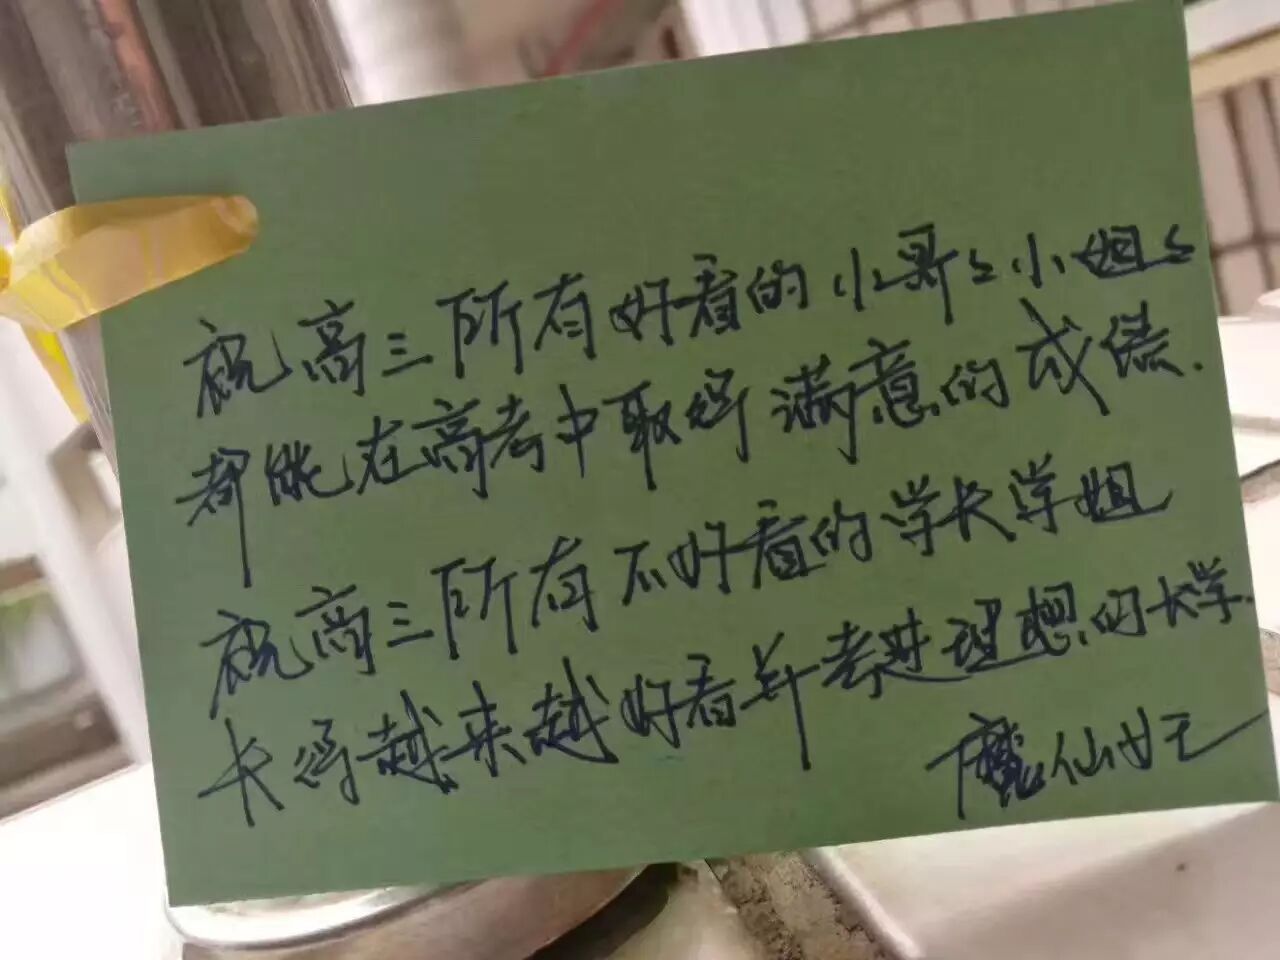 祝高三所有好看的小哥々小姐々
都能在高考中取得满意的成绩.
祝高三所有不好看的学长学姐
长得越来越好看并考进理想的大学.
魔仙女王